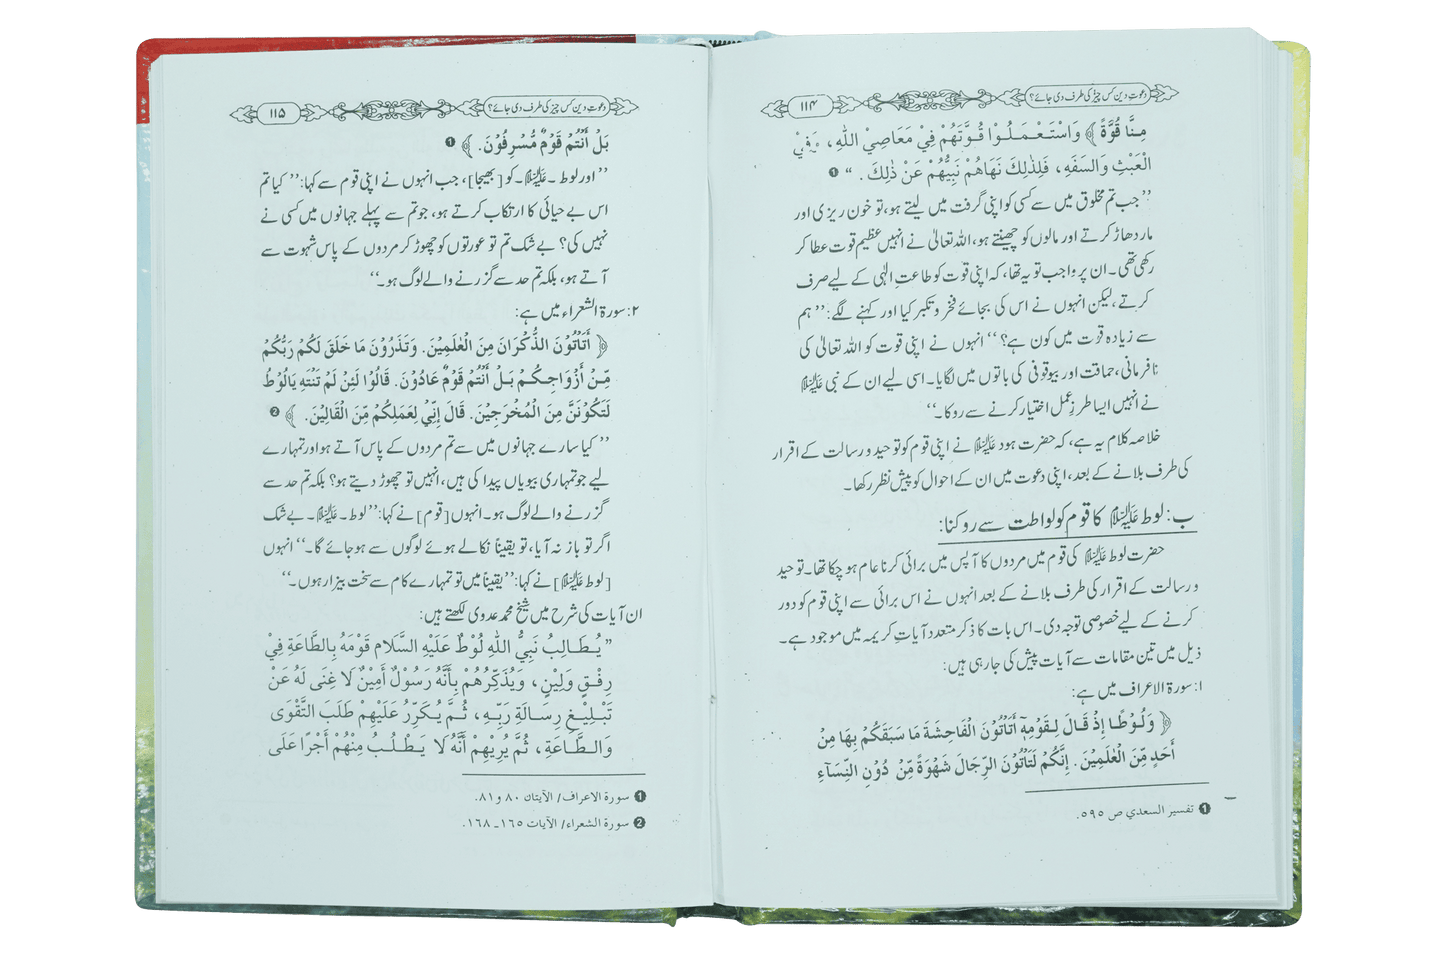 دعوتِ دین کس چیز کی طرف دی جائے؟
۱۱۴
مِنَّا قُوَّةً ﴾ وَاسْتَعْمَلُوْا قُوَّتَهُمْ فِيْ مَعَاصِيْ اللّٰهِ، وَفِيْ
الْعَبْثِ وَالسَفَهِ، فَلِذٰلِكَ نَهَاهُمْ نَبِيُّهُمْ عَنْ ذٰلِكَ . “ ❶
’’جب تم مخلوق میں سے کسی کو اپنی گرفت میں لیتے ہو، تو خون ریزی اور
مار دھاڑ کرتے اور مالوں کو چھینتے ہو، اللہ تعالیٰ نے انہیں عظیم قوت عطا کر
رکھی تھی۔ ان پر واجب تو یہ تھا، کہ اپنی قوت کو طاعتِ الٰہی کے لیے صرف
کرتے، لیکن انہوں نے اس کی بجائے فخر و تکبر کیا اور کہنے لگے: ’’ہم
سے زیادہ قوت میں کون ہے؟‘‘ انہوں نے اپنی قوت کو اللہ تعالیٰ کی
نافرمانی، حماقت اور بیوقوفی کی باتوں میں لگایا۔ اسی لیے ان کے نبی علیہ السلام
نے انہیں ایسا طرزِ عمل اختیار کرنے سے روکا۔‘‘
خلاصہ کلام یہ ہے، کہ حضرت ہود علیہ السلام نے اپنی قوم کو توحید و رسالت کے اقرار
کی طرف بلانے کے بعد، اپنی دعوت میں ان کے احوال کو پیش نظر رکھا۔
ب: لوط علیہ السلام کا قوم کو لواطت سے روکنا:
حضرت لوط علیہ السلام کی قوم میں مردوں کا آپس میں برائی کرنا عام ہو چکا تھا۔ توحید
و رسالت کے اقرار کی طرف بلانے کے بعد انہوں نے اس برائی سے اپنی قوم کو دور
کرنے کے لیے خصوصی توجہ دی۔ اس بات کا ذکر متعدد آیاتِ کریمہ میں موجود ہے۔
ذیل میں تین مقامات سے آیات پیش کی جا رہی ہیں:
۱: سورۃ الاعراف میں ہے:
﴿ وَلُوْطًا اِذْ قَالَ لِقَوْمِهٖٓ اَتَاْتُوْنَ الْفَاحِشَةَ مَا سَبَقَكُمْ بِهَا مِنْ
اَحَدٍ مِّنَ الْعٰلَمِيْنَ. اِنَّكُمْ لَتَاْتُوْنَ الرِّجَالَ شَهْوَةً مِّنْ دُوْنِ النِّسَآءِ
❶ تفسير السعدي ص ٥٩٥.
دعوتِ دین کس چیز کی طرف دی جائے؟
۱۱۵
بَلْ اَنْتُمْ قَوْمٌ مُّسْرِفُوْنَ. ﴾ ❶
’’اور لوط ۔علیہ السلام۔ کو [بھیجا]، جب انہوں نے اپنی قوم سے کہا: ’’کیا تم
اس بے حیائی کا ارتکاب کرتے ہو، جو تم سے پہلے جہانوں میں کسی نے
نہیں کی؟ بے شک تم تو عورتوں کو چھوڑ کر مردوں کے پاس شہوت سے
آتے ہو، بلکہ تم حد سے گزرنے والے لوگ ہو۔‘‘
۲: سورۃ الشعراء میں ہے:
﴿ اَتَاْتُوْنَ الذُّكْرَانَ مِنَ الْعٰلَمِيْنَ. وَتَذَرُوْنَ مَا خَلَقَ لَكُمْ رَبُّكُمْ
مِّنْ اَزْوَاجِكُمْ بَلْ اَنْتُمْ قَوْمٌ عَادُوْنَ. قَالُوْا لَئِنْ لَّمْ تَنْتَهِ يَالُوْطُ
لَتَكُوْنَنَّ مِنَ الْمُخْرَجِيْنَ. قَالَ اِنِّيْ لِعَمَلِكُمْ مِّنَ الْقَالِيْنَ. ﴾ ❷
’’کیا سارے جہانوں میں سے تم مردوں کے پاس آتے ہو اور تمہارے
لیے جو تمہاری بیویاں پیدا کی ہیں، انہیں تو چھوڑ دیتے ہو؟ بلکہ تم حد سے
گزرنے والے لوگ ہو۔ انہوں [قوم] نے کہا: ’’لوط ۔علیہ السلام۔ بے شک
اگر تو باز نہ آیا، تو یقیناً نکالے ہوئے لوگوں سے ہو جائے گا۔‘‘ انہوں
[لوط علیہ السلام] نے کہا: ’’یقیناً میں تو تمہارے کام سے سخت بیزار ہوں۔‘‘
ان آیات کی شرح میں شیخ محمد عدوی لکھتے ہیں:
” يُطَالِبُ نَبِيُّ اللّٰهِ لُوْطٌ عَلَيْهِ السَّلَام قَوْمَهُ بِالطَّاعَةِ فِيْ
رِفْقٍ وَلِيْنٍ، وَيُذَكِّرُهُمْ بِأَنَّهُ رَسُوْلٌ أَمِيْنٌ لَا غِنٰى لَهُ عَنْ
تَبْلِيْغِ رِسَالَةِ رَبِّهِ، ثُمَّ يُكَرِّرُ عَلَيْهِمْ طَلَبَ التَّقْوَى
وَالطَّاعَةِ، ثُمَّ يُرِيْهِمْ أَنَّهُ لَا يَطْلُبُ مِنْهُمْ أَجْرًا عَلَى
❶ سورة الاعراف/ الآيتان ٨٠ و ٨١.
❷ سورة الشعراء/ الآيات ١٦٥ ـ ١٦٨.